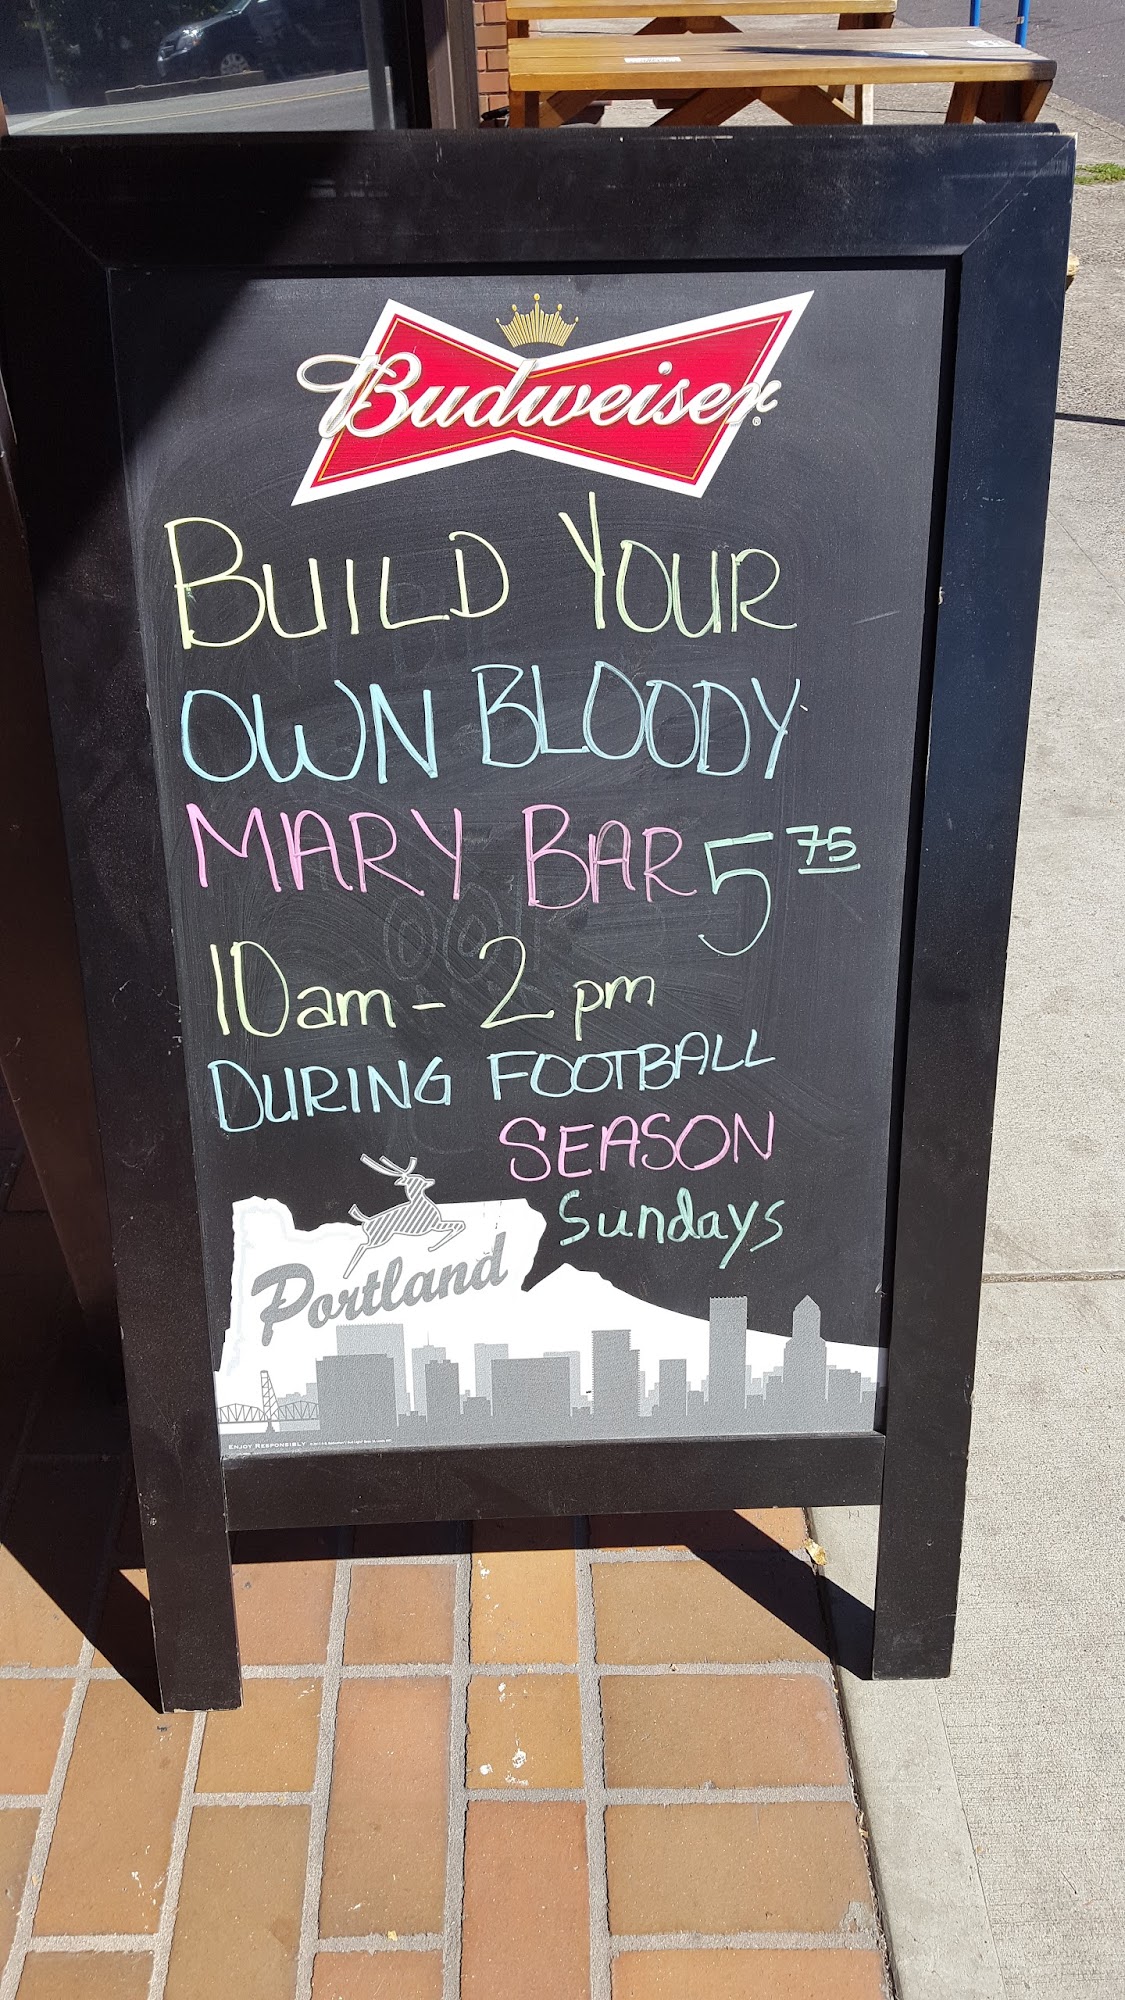 Budweiser
BUILD YOUR
OWN BLOODY
MARY BAR 5 75
10am - 2 pm
DURING FOOTBALL
SEASON
Sundays
Portland
ENJOY RESPONSIBLY